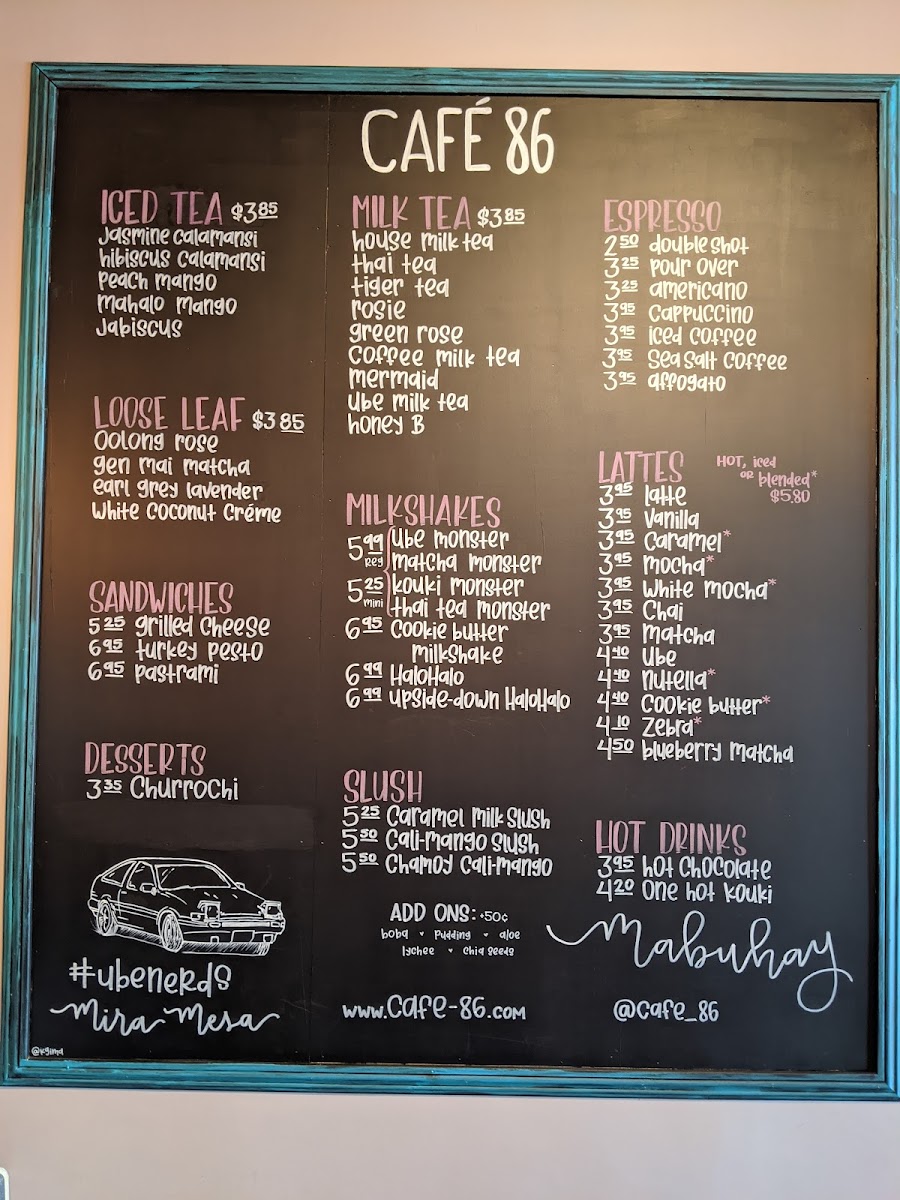 CAFÉ 86
ICED TEA $3.85
Jasmine calamansi
hibiscus calamansi
peach mango
mahalo mango
Jabiscus
LOOSE LEAF $3 85
Oolong rose
gen mai matcha
earl grey lavender
White Coconut Créme
SANDWICHES
5 25 grilled cheese
6 95 turkey pesto
6 95 pastrami
DESSERTS
3 35 Churrochi
#ubenerds
Mira Mesa
MILK TEA $3 85
house milk tea
thai tea
tiger tea
rosie
green rose
coffee milk tea
mermaid
ube milk tea
honey B
MILKSHAKES
5 99 Reg
5 25 mini
ube monster
matcha monster
kouki monster
thai tea monster
6 95 Cookie butter
milkshake
6 99 HaloHalo
6 99 upside-down HaloHalo
SLUSH
5 25 Caramel Milk Slush
5 50 Cali-Mango Slush
5 50 Chamoy Cali-Mango
ADD ONS: +50¢
boba ♥ Pudding ♥ aloe
lychee ♥ Chia Seeds
www.Cafe-86.com
ESPRESSO
2 50 double shot
3 25 pour over
3 25 americano
3 95 Cappuccino
3 95 iced coffee
3 95 Sea Salt Coffee
3 95 affogato
LATTES
HOT, iced
or blended*
$5.80
3 95 latte
3 95 Vanilla
3 95 Caramel*
3 95 mocha*
3 95 White mocha*
3 95 Chai
3 95 matcha
4 40 Ube
4 40 nutella*
4 40 Cookie butter*
4 10 Zebra*
4 50 blueberry matcha
HOT DRINKS
3 95 hot chocolate
4 20 One hot kouki
Mabuhay
@cafe_86